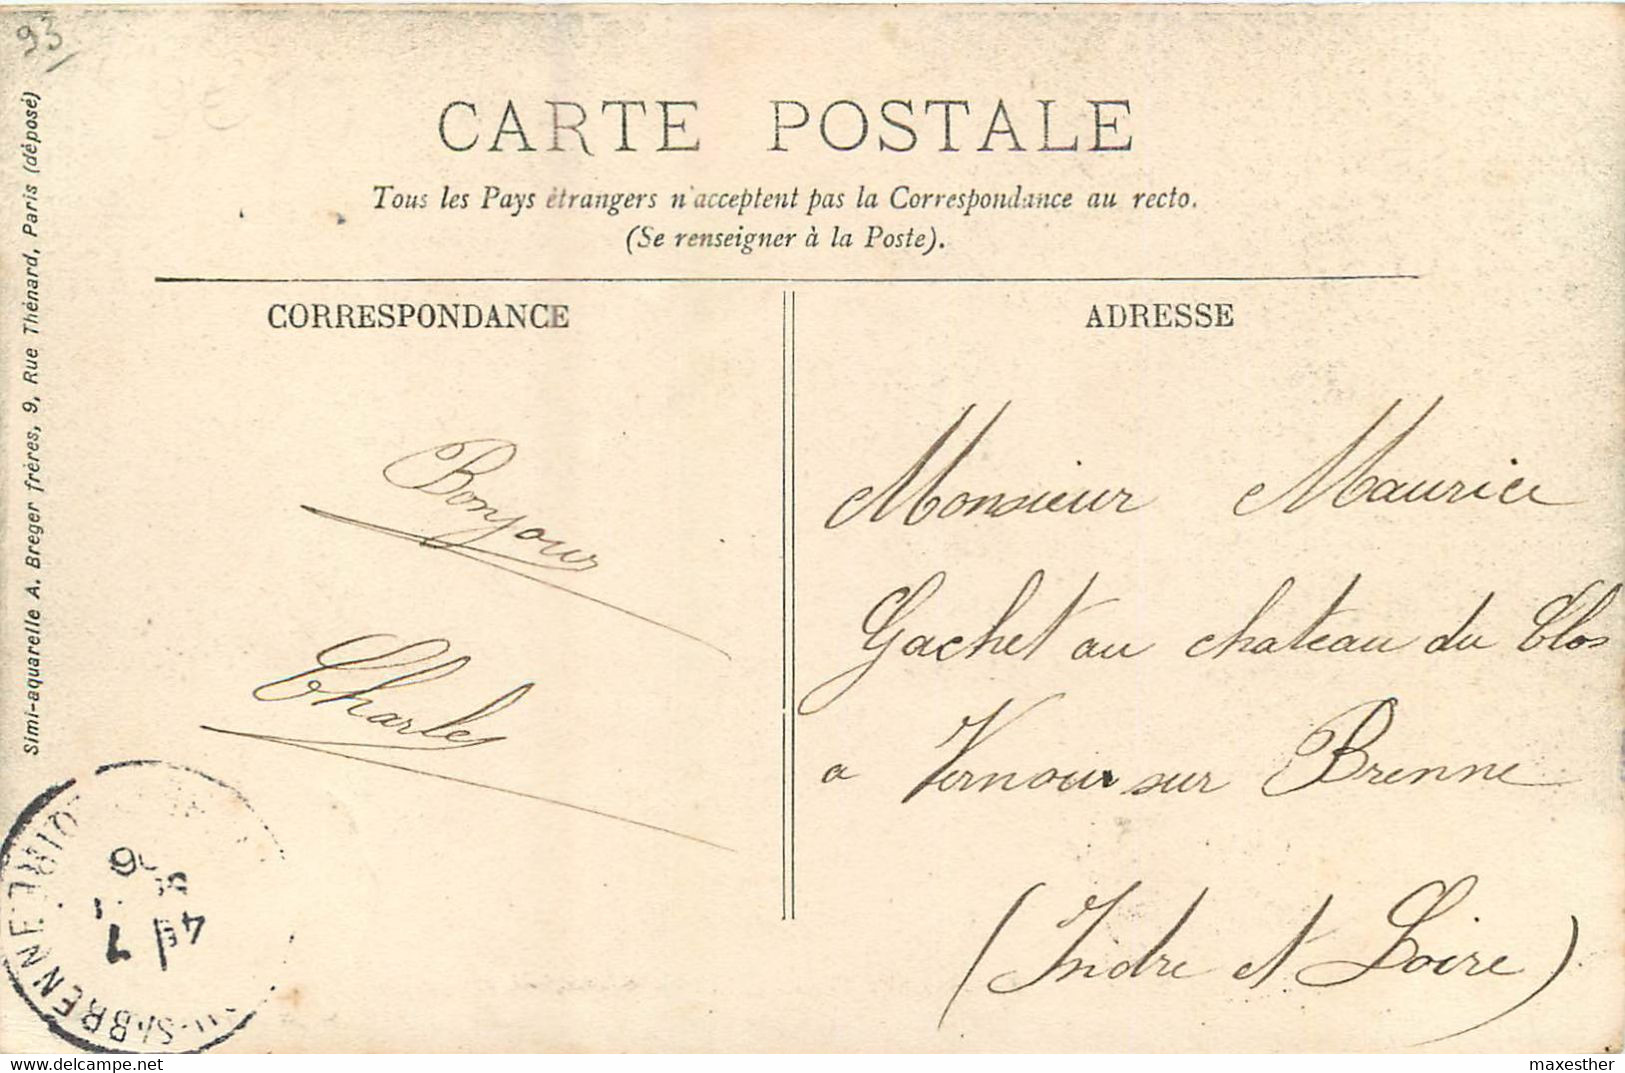 93
CARTE POSTALE
Tous les Pays étrangers n'acceptent pas la Correspondance au recto.
(Se renseigner à la Poste).
CORRESPONDANCE
ADRESSE
Simi-aquarelle A. Breger frères, 9, Rue Thénard, Paris (déposé)
Bonjour
Charles
Monsieur Maurice
Gachet au chateau du Clos
a Vernour sur Brenne
(Indre et Loire)
S-BRENNE
delcampe.net
maxesther